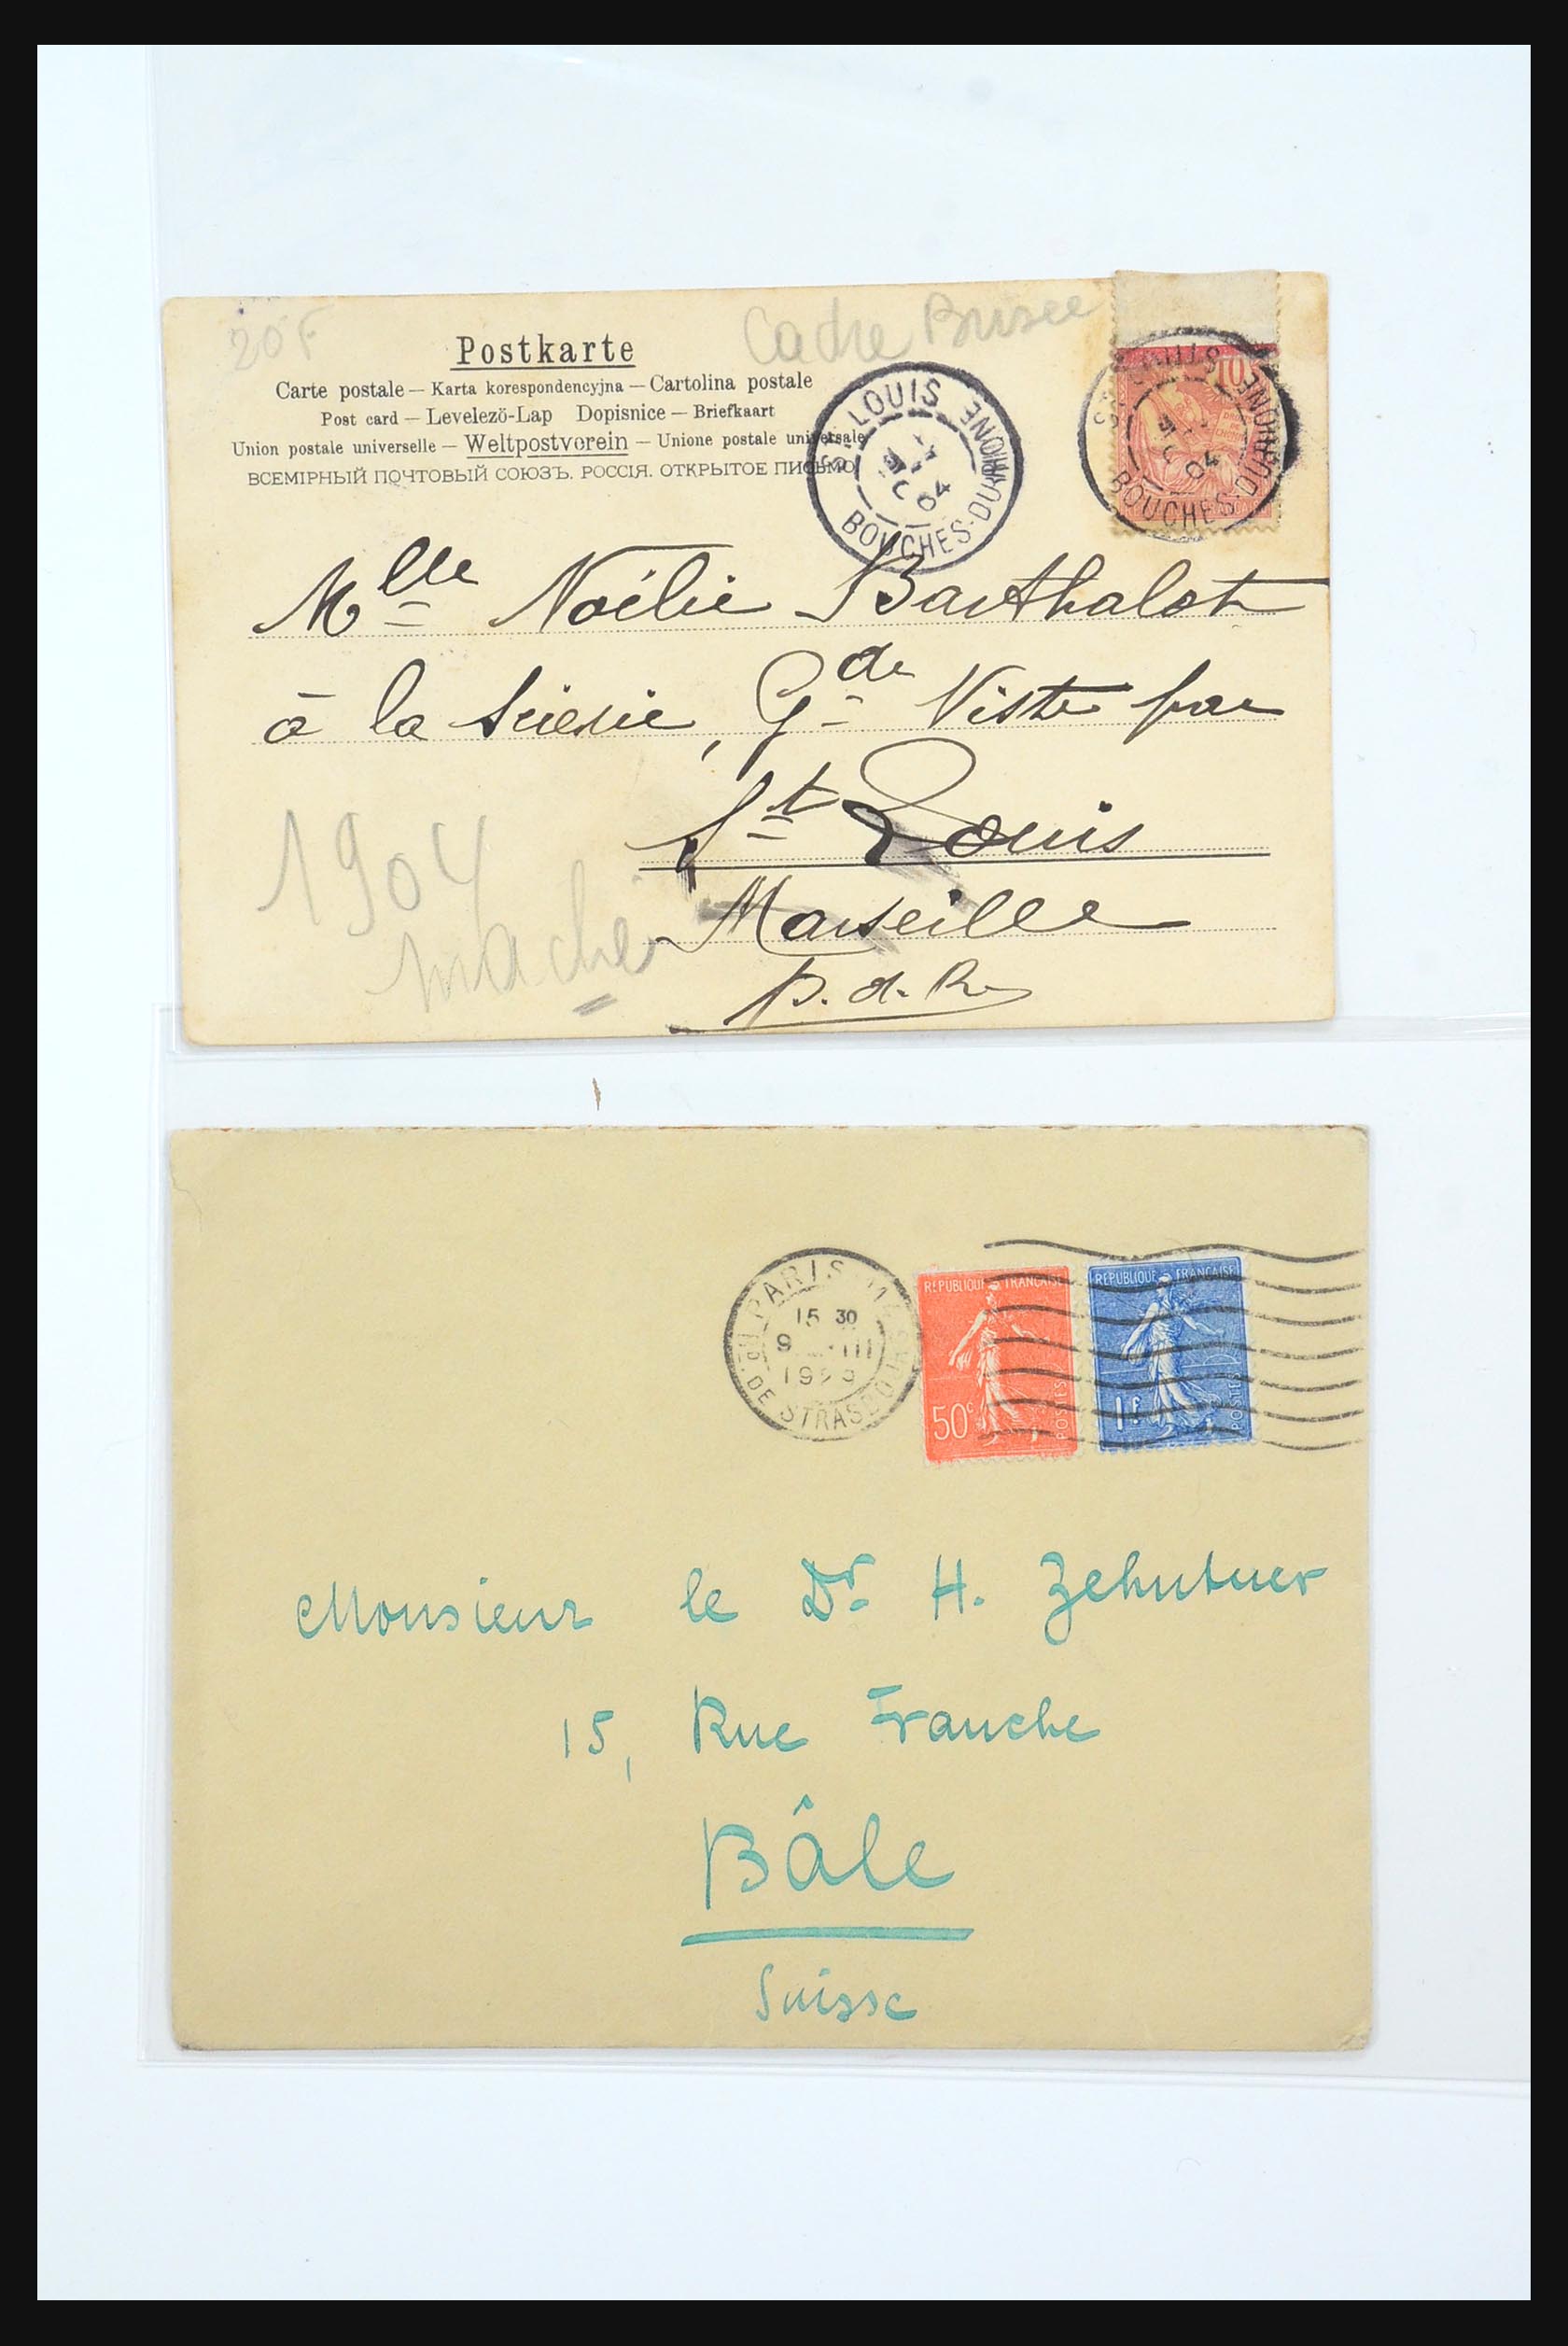 20F
Cadre Brisée
Postkarte
Carte postale — Karta korespondencyjna — Cartolina postale
Post card — Levelező-Lap Dopisnice — Briefkaart
Union postale universelle — Weltpostverein — Unione postale universale
ВСЕМІРНЫЙ ПОЧТОВЫЙ СОЮЗЪ. РОССІЯ. ОТКРЫТОЕ ПИСЬМО
ST LOUIS
04
BOUCHES-DU-RHONE
10
04
BOUCHES-DU-RHONE
Mlle Noélie Barthalot
à la Scierie, Gde Viste par
St Louis
Marseille
B. d. R.
1904
PARIS
15 30
9 III
DE STRASBOURG
REPUBLIQUE FRANÇAISE
50c
POSTES
REPUBLIQUE FRANÇAISE
1F
POSTES
Monsieur le Dr. H. Zehntner
15, Rue Franche
Bâle
Suisse